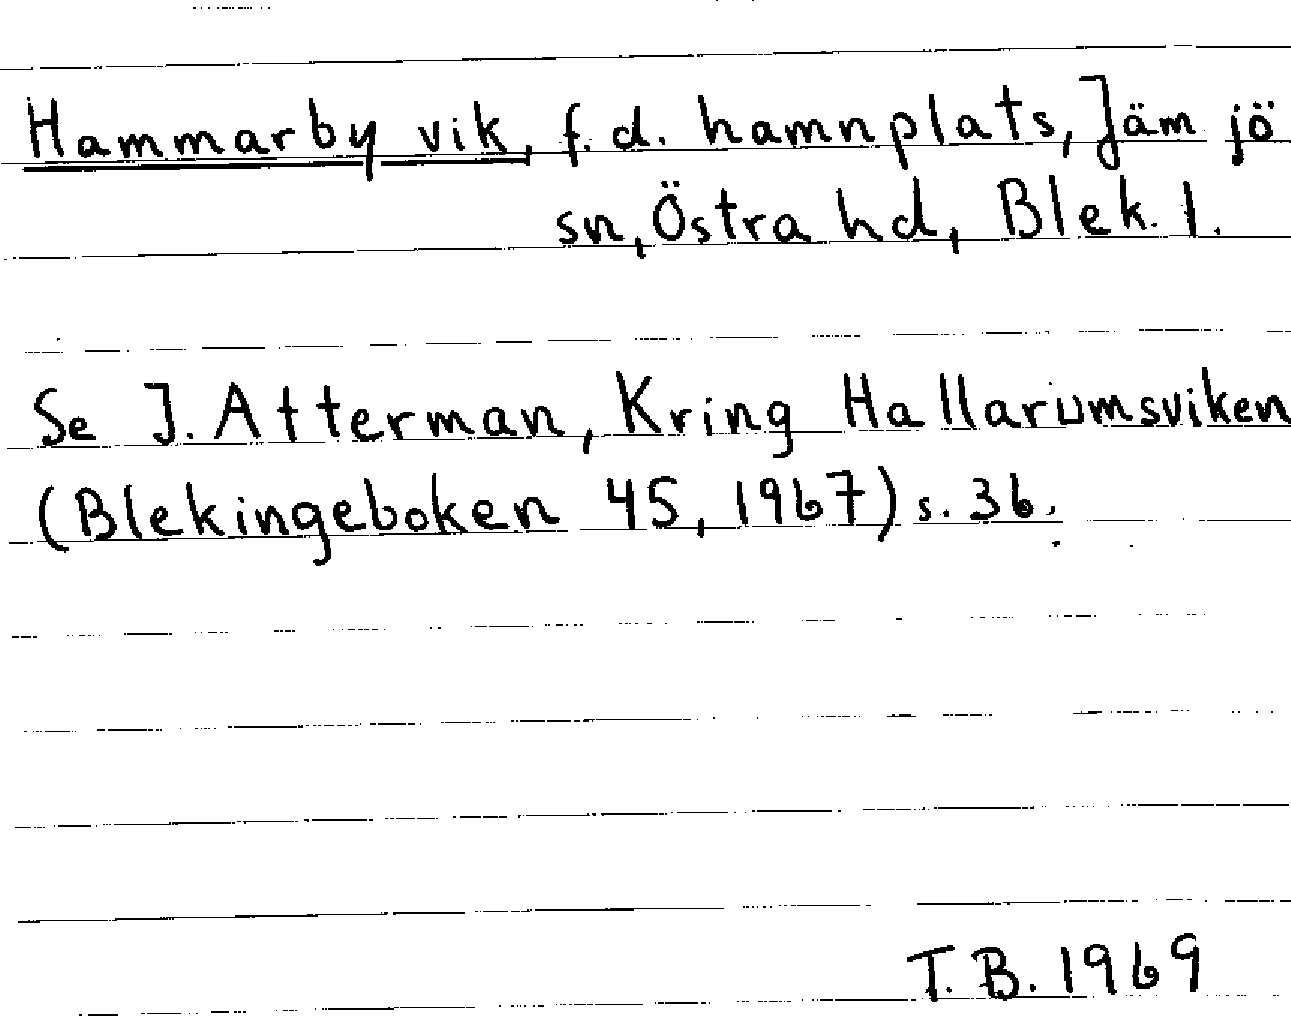 Hammarby vik, f.d. hamnplats, Jämjö
sn, Östra hd, Blek. l.
Se J. Atterman, Kring Hallarumsviken
(Blekingeboken 45, 1967) s. 36.
T.B. 1969